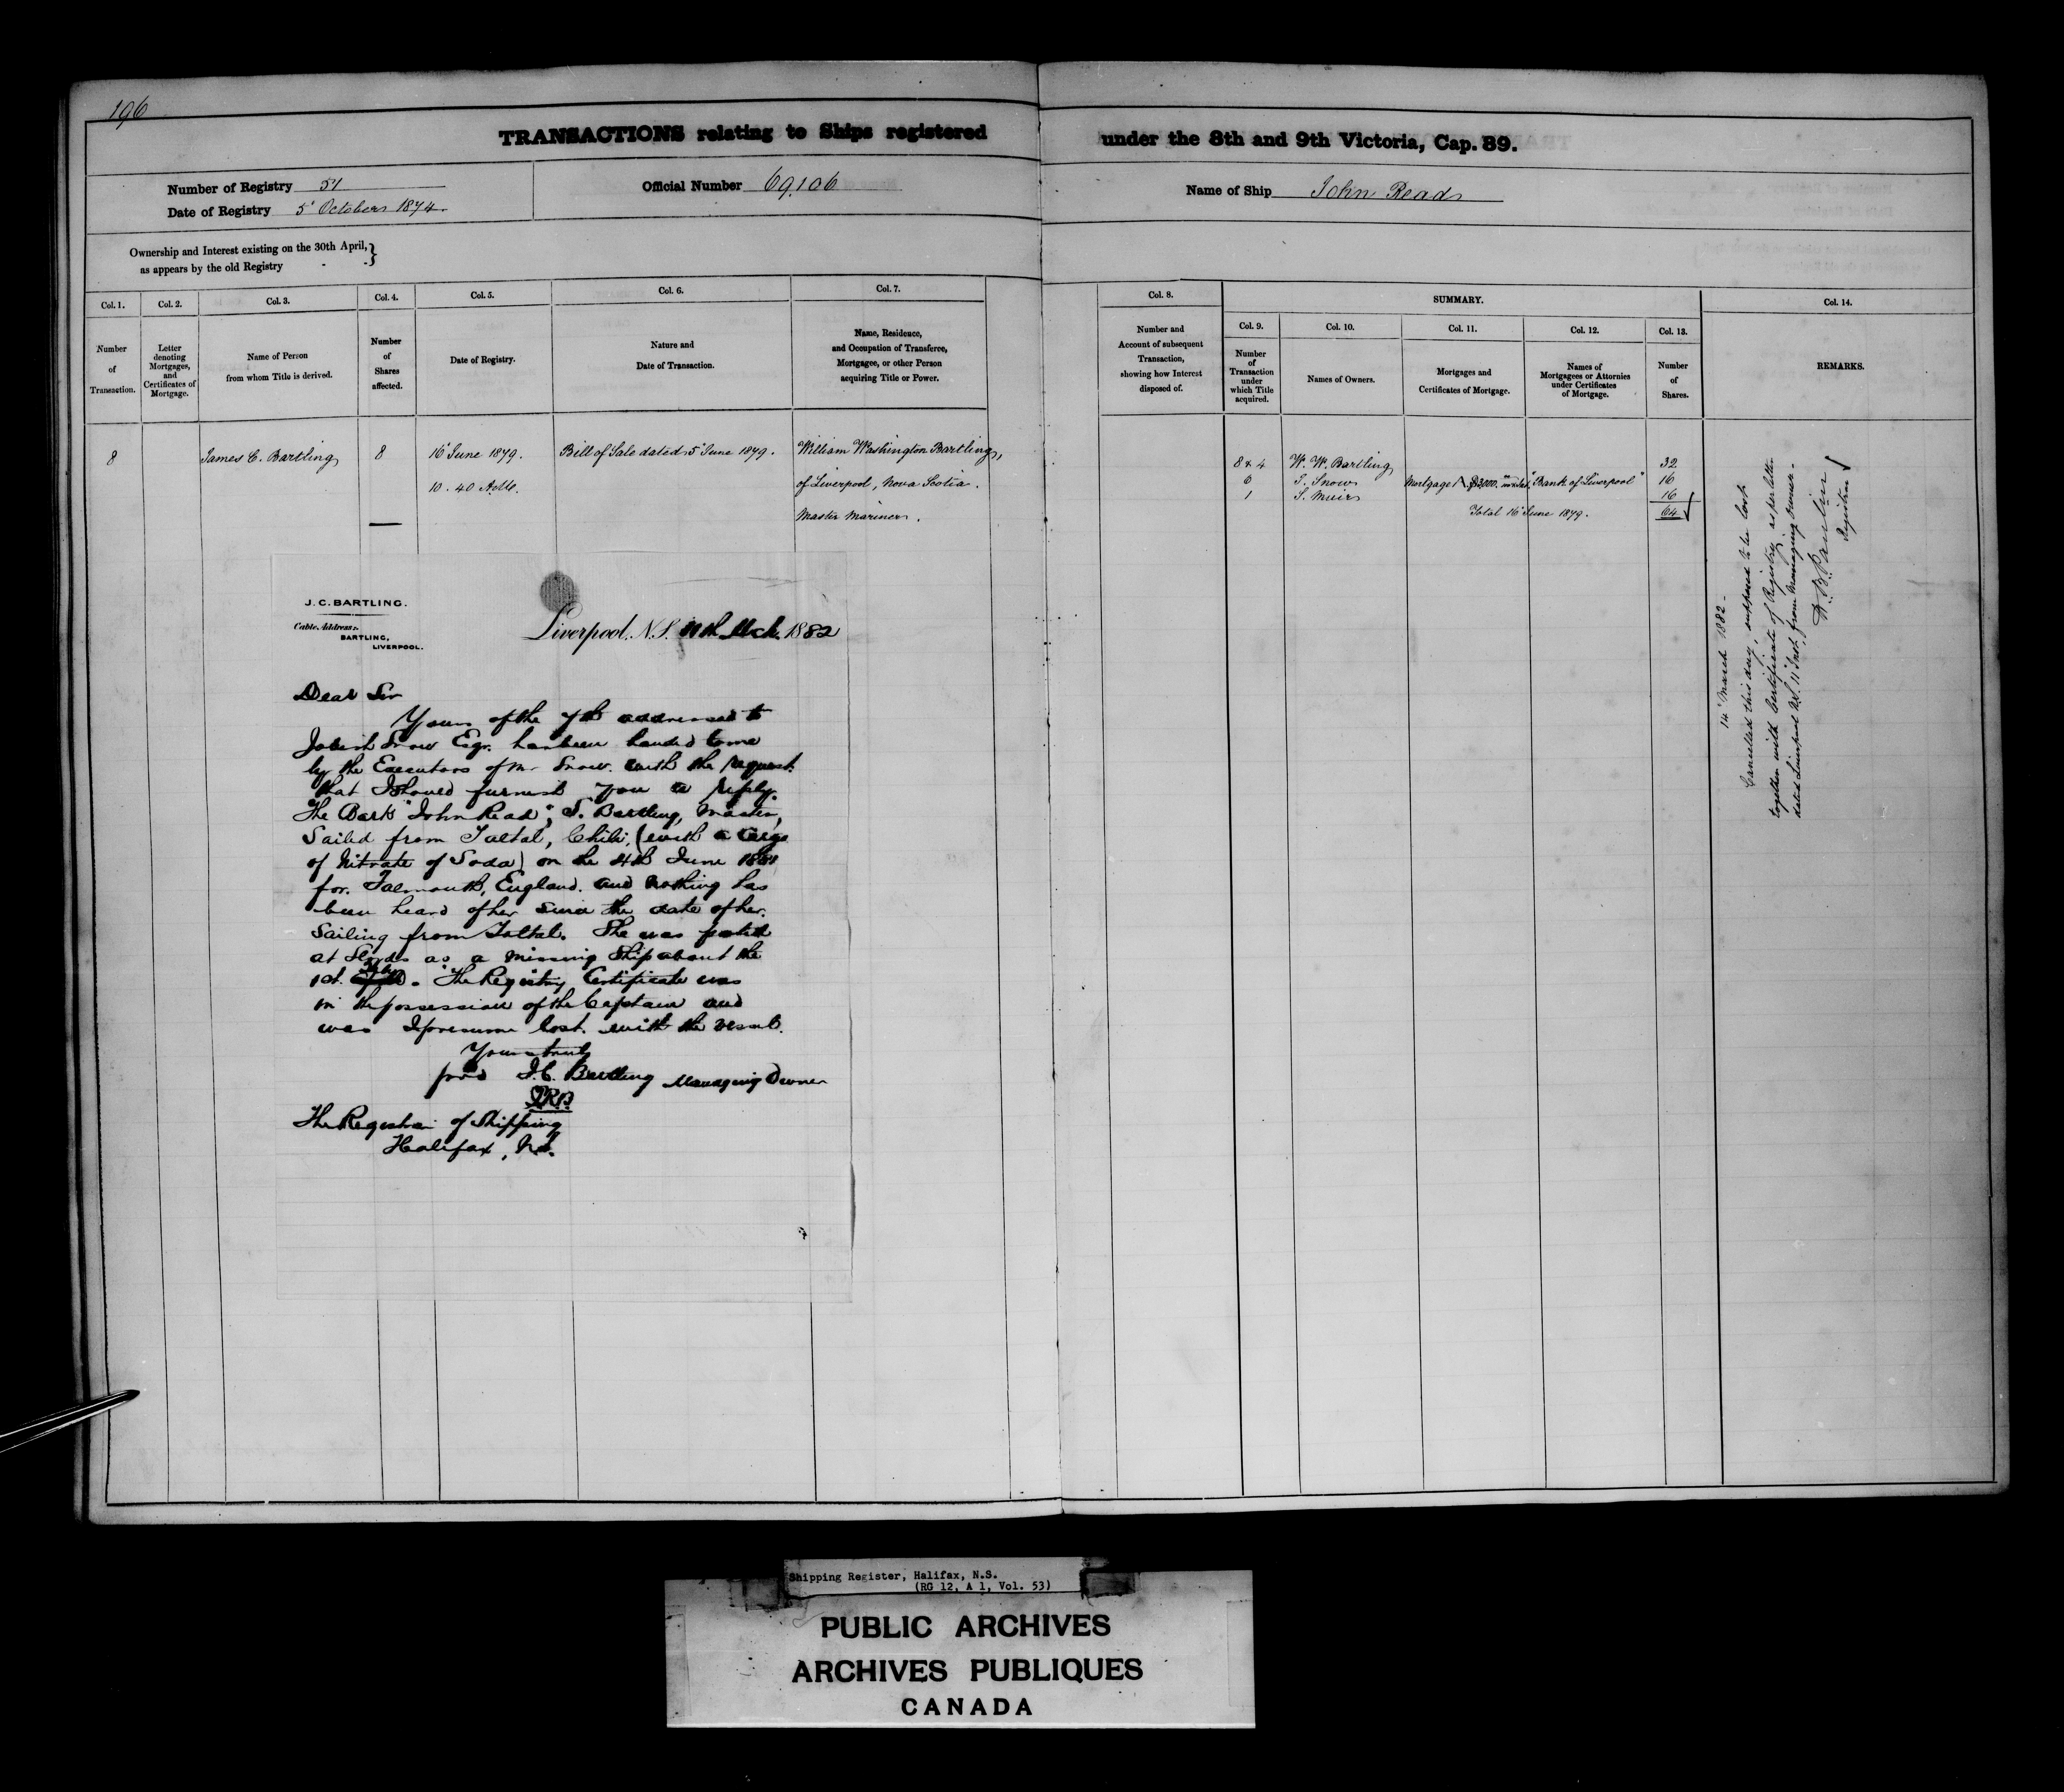 196
TRANSACTIONS relating to Ships registered under the 8th and 9th Victoria, Cap. 89.
Number of Registry 51
Date of Registry 5' October 1874.
Official Number 69.106
Name of Ship John Read
Ownership and Interest existing on the 30th April,}
as appears by the old Registry - -
Col. 1. Col. 2. Col. 3. Col. 4. Col. 5. Col. 6. Col. 7.
Number of Transaction.
Letter denoting Mortgages, and Certificates of Mortgage.
Name of Person from whom Title is derived.
Number of Shares affected.
Date of Registry.
Nature and Date of Transaction.
Name, Residence, and Occupation of Transferee, Mortgagee, or other Person acquiring Title or Power.
8 James C. Bartling 8 16' June 1879. Bill of Sale dated 5' June 1879. William Washington Bartling,
10.40 A.M. of Liverpool, Nova Scotia.
Master Mariner.
J. C. BARTLING.
Cable Address:
BARTLING,
LIVERPOOL.
Liverpool, N.S. 11th Mch. 1882
Dear Sir
Yours of the 7th addressed to
Snow Esqr. has been handed to me
by the Executors of Mr Snow. with the request
that I should furnish you a reply.
The Bark "John Read", S. Bartling, Master,
Sailed from Taltal, Chili, (with a Cargo
of Nitrate of Soda) on the 4th June 1881
for Falmouth, England. and nothing has
been heard of her since the date of her
Sailing from Taltal. She was posted
at Lloyds as a missing Ship about the
1st. Feby. The Registry Certificate was
in the possession of the Captain and
was I presume lost with the vessel.
Yours truly
J. C. Bartling Managing Owner
The Registrar of Shipping
Halifax, N.S.
Col. 8.
Number and Account of subsequent Transaction, showing how Interest disposed of.
SUMMARY.
Col. 9. Col. 10. Col. 11. Col. 12. Col. 13.
Number of Transaction under which Title acquired.
Names of Owners.
Mortgages and Certificates of Mortgage.
Names of Mortgagees or Attornies under Certificates of Mortgage.
Number of Shares.
Col. 14.
REMARKS.
8 & 4 W. W. Bartling 32
6 S. Snow Mortgage A $3000. "Bank of Liverpool" 16
1 S. Muir 16
Total 16' June 1879. 64
14' March 1882 -
Cancelled this day, supposed to be lost
together with Certificate of Registry, as per letter
dated Liverpool N.S. 11' Inst. from Managing Owner -
Registrar
Shipping Register, Halifax, N.S.
(RG 12, A 1, Vol. 53)
PUBLIC ARCHIVES
ARCHIVES PUBLIQUES
CANADA